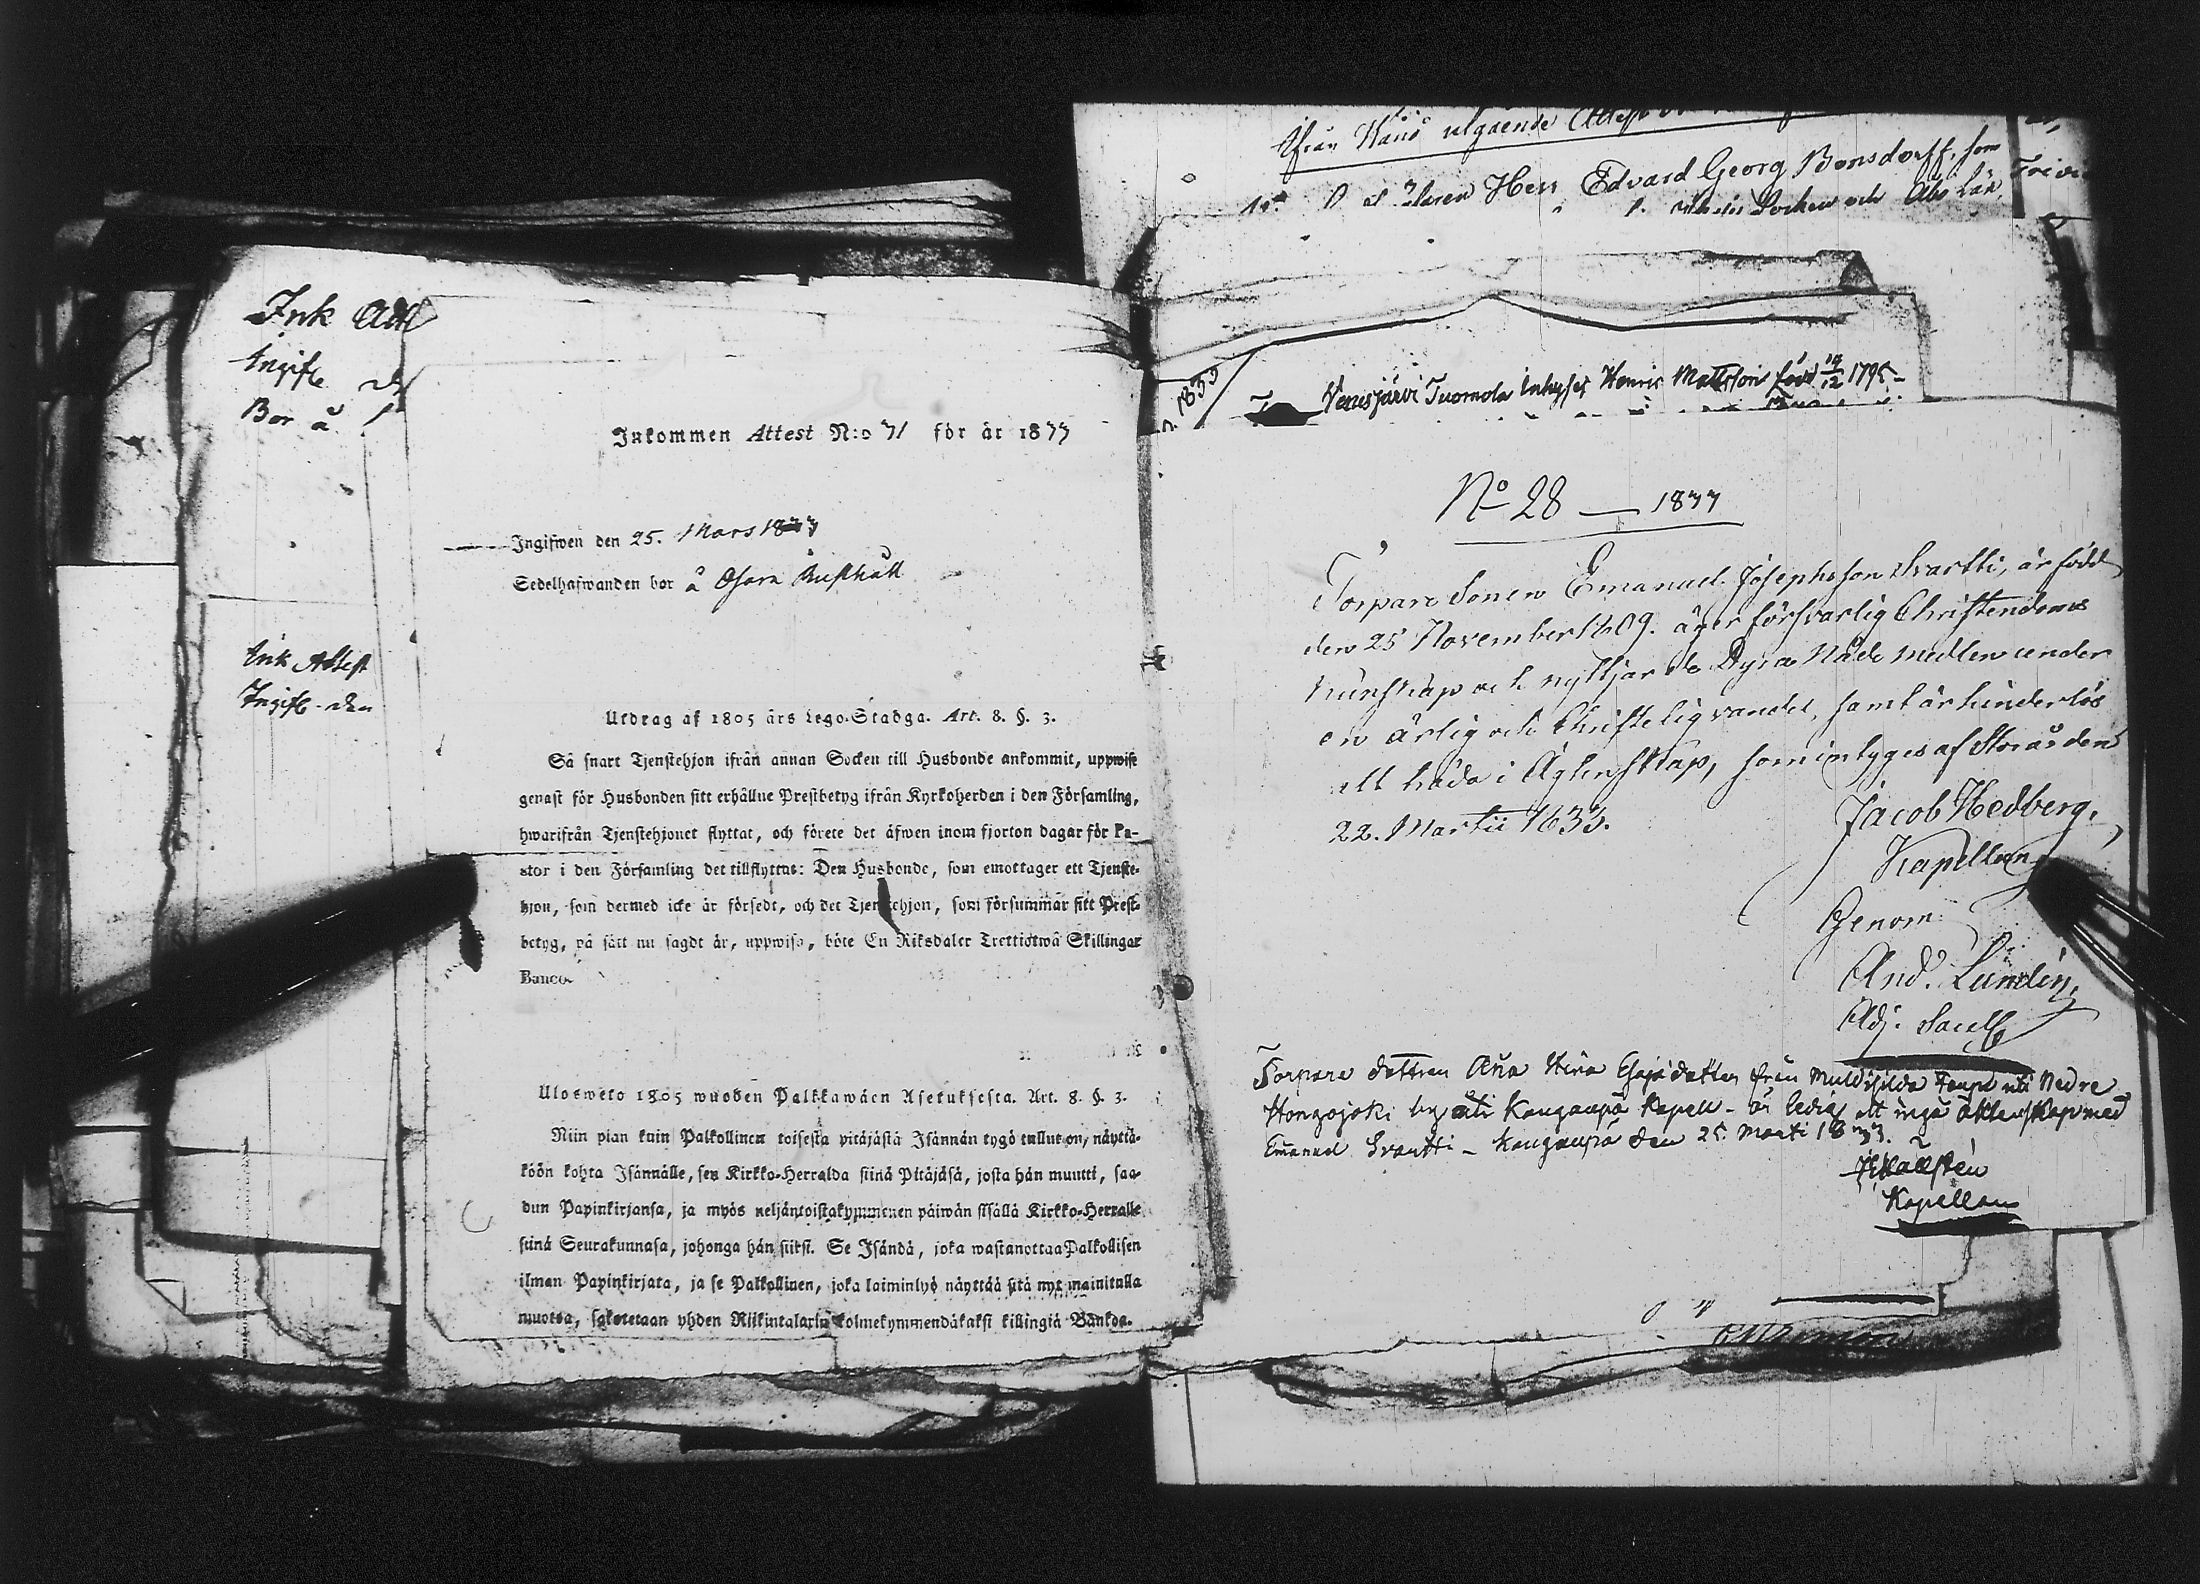 Ink Att
Ingifw d
Bor å
Ink Attest
Ingifw den
Inkommen Attest N:o 71 för år 1833
Ingifwen den 25. Mars 1833
Sedelhafwanden bor å Rusthåll
Utdrag af 1805 års Lego-Stadga. Art. 8. §. 3.
Så snart Tjenstehjon ifrån annan Socken till Husbonde ankommit, uppwise
genast för Husbonden sitt erhållne Prestbetyg ifrån Kyrkoherden i den Församling,
hwarifrån Tjenstehjonet flyttat, och förete det äfwen inom fjorton dagar för Pa-
stor i den Församling det tillflyttat: Den Husbonde, som emottager ett Tjenste-
hjon, som dermed icke är försedt, och det Tjenstehjon, som försummar sitt Prest-
betyg, på sätt nu sagdt är, uppwisa, böte En Riksdaler Trettiotwå Skillingar
Banco.
Ulosweto 1805 wuoden Palkkawäen Asetuksesta. Art. 8. §. 3.
Niin pian kuin Palkollinen toisesta pitäjästä Isännän tygö tullut on, näyttä-
köön kohta Isännälle, sen Kirkko-Herralda siinä Pitäjäsä, josta hän muutti, saa-
dun Papinkirjansa, ja myös neljäntoistakymmenen päiwän sisällä Kirkko-Herralle
siinä Seurakunnasa, johonga hän siirsi. Se Isändä, joka wastanottaa Palkollisen
ilman Papinkirjata, ja se Palkollinen, joka laiminlyö näyttää sitä nyt mainitulla
muotoa, sakotetaan yhden Riikintalarin kolmekymmendäkaksi killingiä Bankoa.
ifrån utgående Attest
Herr Edvard Georg Bonsdorff, som
Socken och Åbo Län
1833
Venesjärvi Tuomola Inhyses Henric Mattsson född 14/12 1795
No 28 — 1833
Torpare Sonen Emanuel Josephsson Svartti, är född
den 25 November 1809. äger försvarlig Christendoms
kunskap och nyttjar de Dyra Nåde medlen under
en ärlig och Christelig vandel, samt är hinderlös
att träda i Äktenskap, som intygas af Storå den
22. Martii 1833.
Jacob Hedberg,
Kapellan
Genom
And. Lundin,
Adj. Sacell
Torpare dottren Aña Stina Esajsdotter från Torp uti Nedre
Hongojoki by uti Kangaupä Kapell - är ledig att ingå äktenskap med
Emanuel Svartti - Kangaupä den 25. Marti 1833.
Kapellan